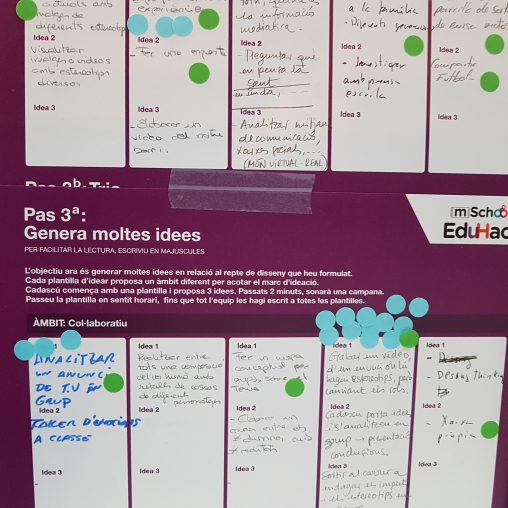 actuals amb
imatges de
diferents estereotips
Visualitzar
imatges o videos
amb estereotips
diversos
Idea 3
Idea 2
- Fer una enquesta
Idea 3
- Elaborar un
video del nostre
barri.
la informació
mediàtica.
Idea 2
- Preguntar què
en pensa la
gent
Idea 3
- Analitzar mitjans
de comunicació,
xarxes socials, ...
(MÓN VIRTUAL-REAL)
a la família
Idea 2
- Investigar
amb premsa
escrita
Idea 3
Idea 2
Compartir
Futbol
Idea 3
Pas 3ª:
Genera moltes idees
PER FACILITAR LA LECTURA, ESCRIVIU EN MAJÚSCULES
mSchools
EduHac
L'objectiu ara és generar moltes idees en relació al repte de disseny que heu formulat.
Cada plantilla d'idear proposa un àmbit diferent per acotar el marc d'ideació.
Cadascú comença amb una plantilla i proposa 3 idees. Passats 2 minuts, sonarà una campana.
Passeu la plantilla en sentit horari, fins que tot l'equip les hagi escrit a totes les plantilles.
ÀMBIT: Col·laboratiu
ANALITZAR
UN ANUNCI
DE T.V EN
GRUP
Idea 2
TALLER D'EMOCIONS
A CLASSE
Idea 3
Idea 1
Realitzar entre
tots una composició
del cos humà amb
retalls de cossos
de diferents
personatges
Idea 3
Idea 1
Fer un mapa
conceptual per
grups, sobre el
tema
Idea 2
- Elaborar un
entre els
alumnes amb
Idea 3
Idea 1
Gravar un vídeo,
d'un anunci on hi
hagin estereotips, però
canviant els rols.
Idea 2
Cadascú porta idees
i s'analitzen en
grup → presentació
conclusions.
Idea 3
Sortir al carrer a
indagar els impact
i els estereotips en
Idea 1
- Design Thinking
Idea 2
- Xarxa
pròpia
Idea 3